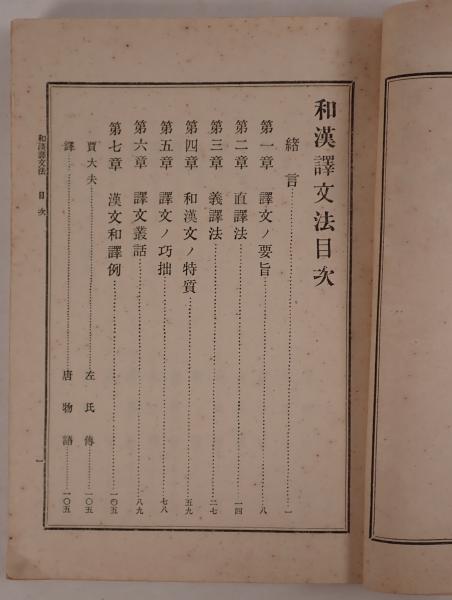 和漢譯文法目次
緒言……一
第一章 譯文ノ要旨……八
第二章 直譯法……一四
第三章 義譯法……二七
第四章 和漢文ノ特質……五九
第五章 譯文ノ巧拙……七八
第六章 譯文叢話……八九
第七章 漢文和譯例……一〇五
賈大夫……左氏傳……一〇五
譯……唐物語……一〇五
和漢譯文法 目次
一